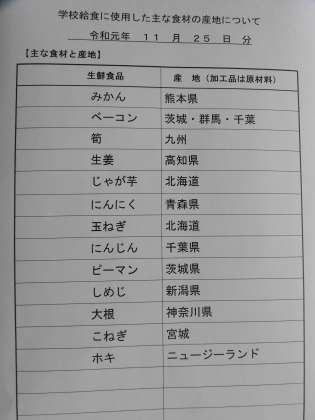 学校給食に使用した主な食材の産地について
令和元年 11 月 25 日 分
【主な食材と産地】
生鮮食品 産 地（加工品は原材料）
みかん 熊本県
ベーコン 茨城・群馬・千葉
筍 九州
生姜 高知県
じゃが芋 北海道
にんにく 青森県
玉ねぎ 北海道
にんじん 千葉県
ピーマン 茨城県
しめじ 新潟県
大根 神奈川県
こねぎ 宮城
ホキ ニュージーランド